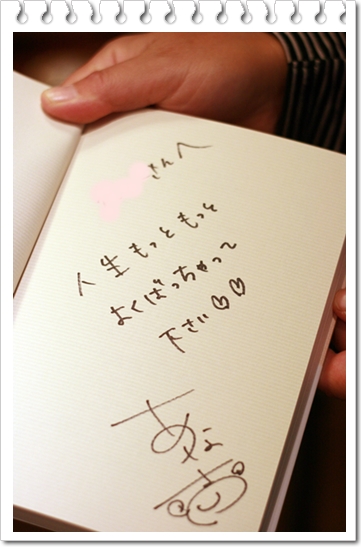 さんへ
人生もっともっと
よくばっちゃって
下さい♡♡